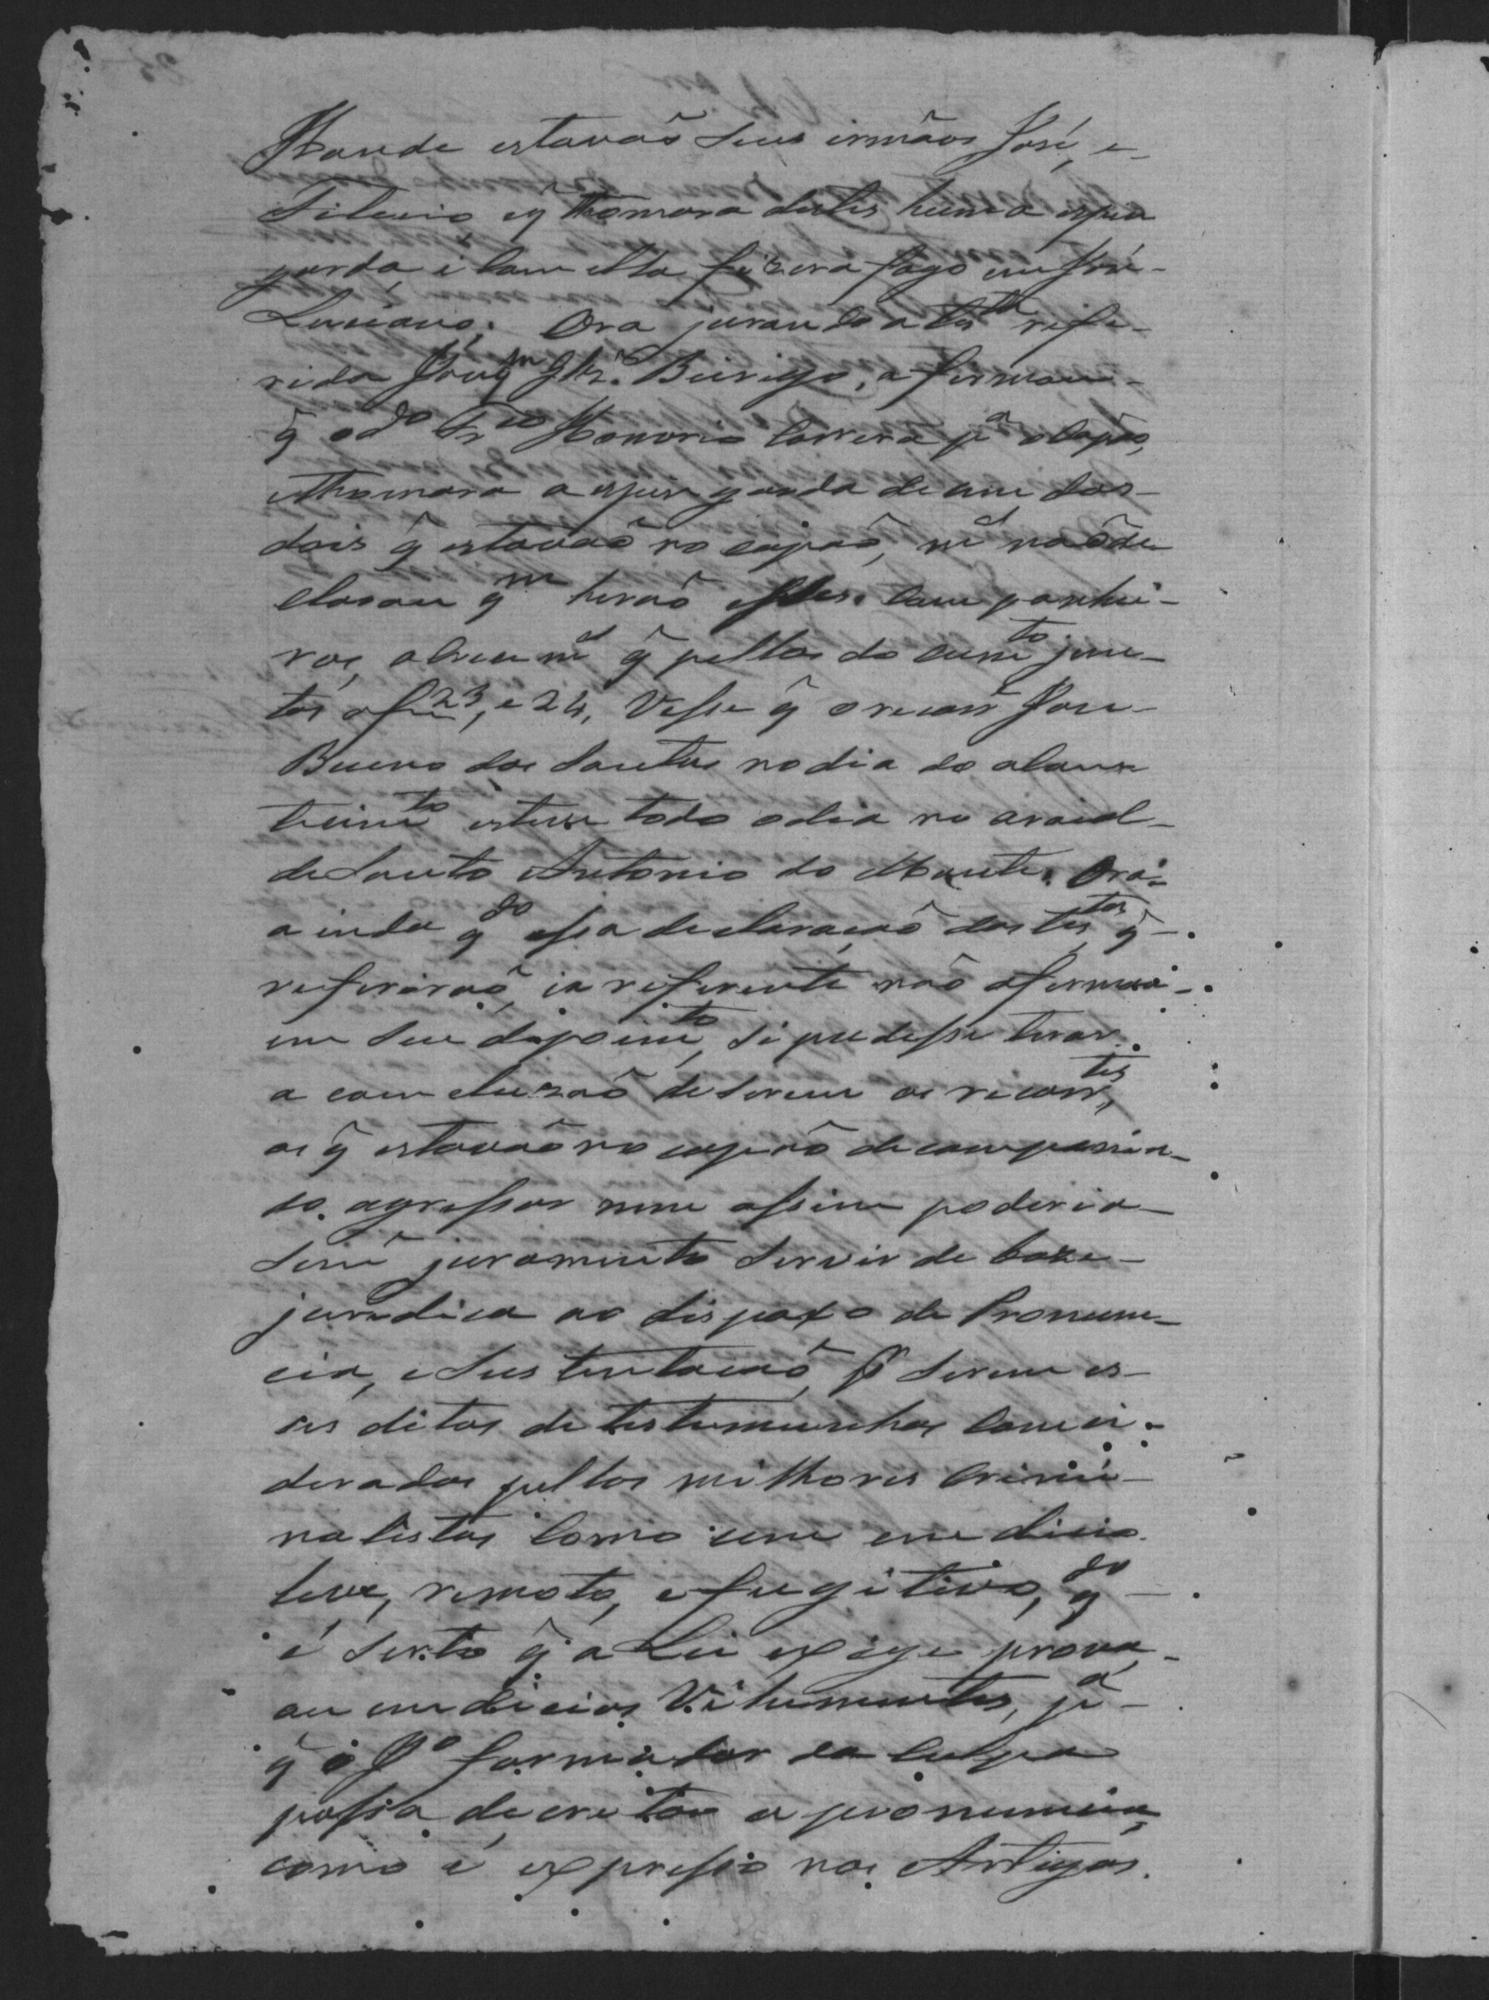 Honde estavaõ seus irmãos José, e
Silverio e q̃ thomara delles huma espin
garda, e com ella fizera fogo em José
Luciano; Ora jurando a tes.ta refe-
rida Joaq.m Glz. Beirigo, afirmou
q̃ o d.o Fr.co Honorio correra p.a o capaõ,
e thomara a espin garda de um dos
dois q̃ estavaõ no capaõ, m.s naõ de
clarou q.m heraõ esses companhei-
ros, alem m.s q̃ pellos documt.os jun-
tos a f 23, e 24, Vesse q̃ o recorr. Jose
Bueno dos Santos no dia do acon
tecim.to esteve todo o dia no araial
de Santo Antonio do Monte. Ora
ainda q.do essa declaraçaõ das tes.tas q̃
referiraõ, ea referente naõ afirmou
em seu depoim.to, si pudesse tirar
a comcluzaõ de serem os recorr.tes
os q̃ estavaõ no capaõ de companhia
do agressor nem assim poderia
sem juramento servir de baze
juredica ao dispaxo de Pronun-
cia, e sustentacaõ, p.r serem es-
ses ditos de testemunhas consi-
derados pellos milhores crimi-
nalistas como um emdicio
leve, remoto, e fugitivo, q.do
é serto q̃ a Lei exige prova
ou emdicios Vihementes, p.a
q̃ o J.o formador da culpa
possa decretar a pronuncia,
como é expresso nos Artigos.